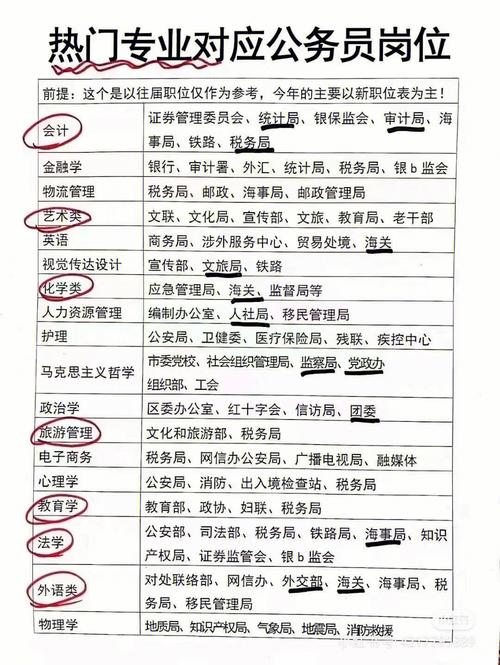 热门专业对应公务员岗位
前提：这个是以往届职位仅作为参考，今年的主要以新职位表为主！
会计
证券管理委员会、统计局、银保监会、审计局、海
事局、铁路、税务局
金融学
银行、审计署、外汇、统计局、税务局、银b监会
物流管理
税务局、邮政、海事局、邮政管理局
艺术类
文联、文化局、宣传部、文旅、教育局、老干部
英语
商务局、涉外服务中心、贸易处境、海关
视觉传达设计
宣传部、文旅局、铁路
化学类
应急管理局、海关、监督局等
人力资源管理
编制办公室、人社局、移民管理局
护理
公安局、卫健委、医疗保险局、残联、疾控中心
马克思主义哲学
市委党校、社会组织管理局、监察局、党政办
组织部、工会
政治学
区委办公室、红十字会、信访局、团委
旅游管理
文化和旅游部、税务局
电子商务
税务局、网信办公安局、广播电视局、融媒体
心理学
公安局、消防、出入境检查站、税务局
教育学
教育部、政协、妇联、税务局
法学
公安部、司法部、税务局、铁路局、海事局、知识
产权局、证券监管会、银b监会
外语类
对处联络部、网信办、外交部、海关、海事局、税
务局、移民管理局
物理学
地质局、知识产权局、气象局、地震局、消防救援